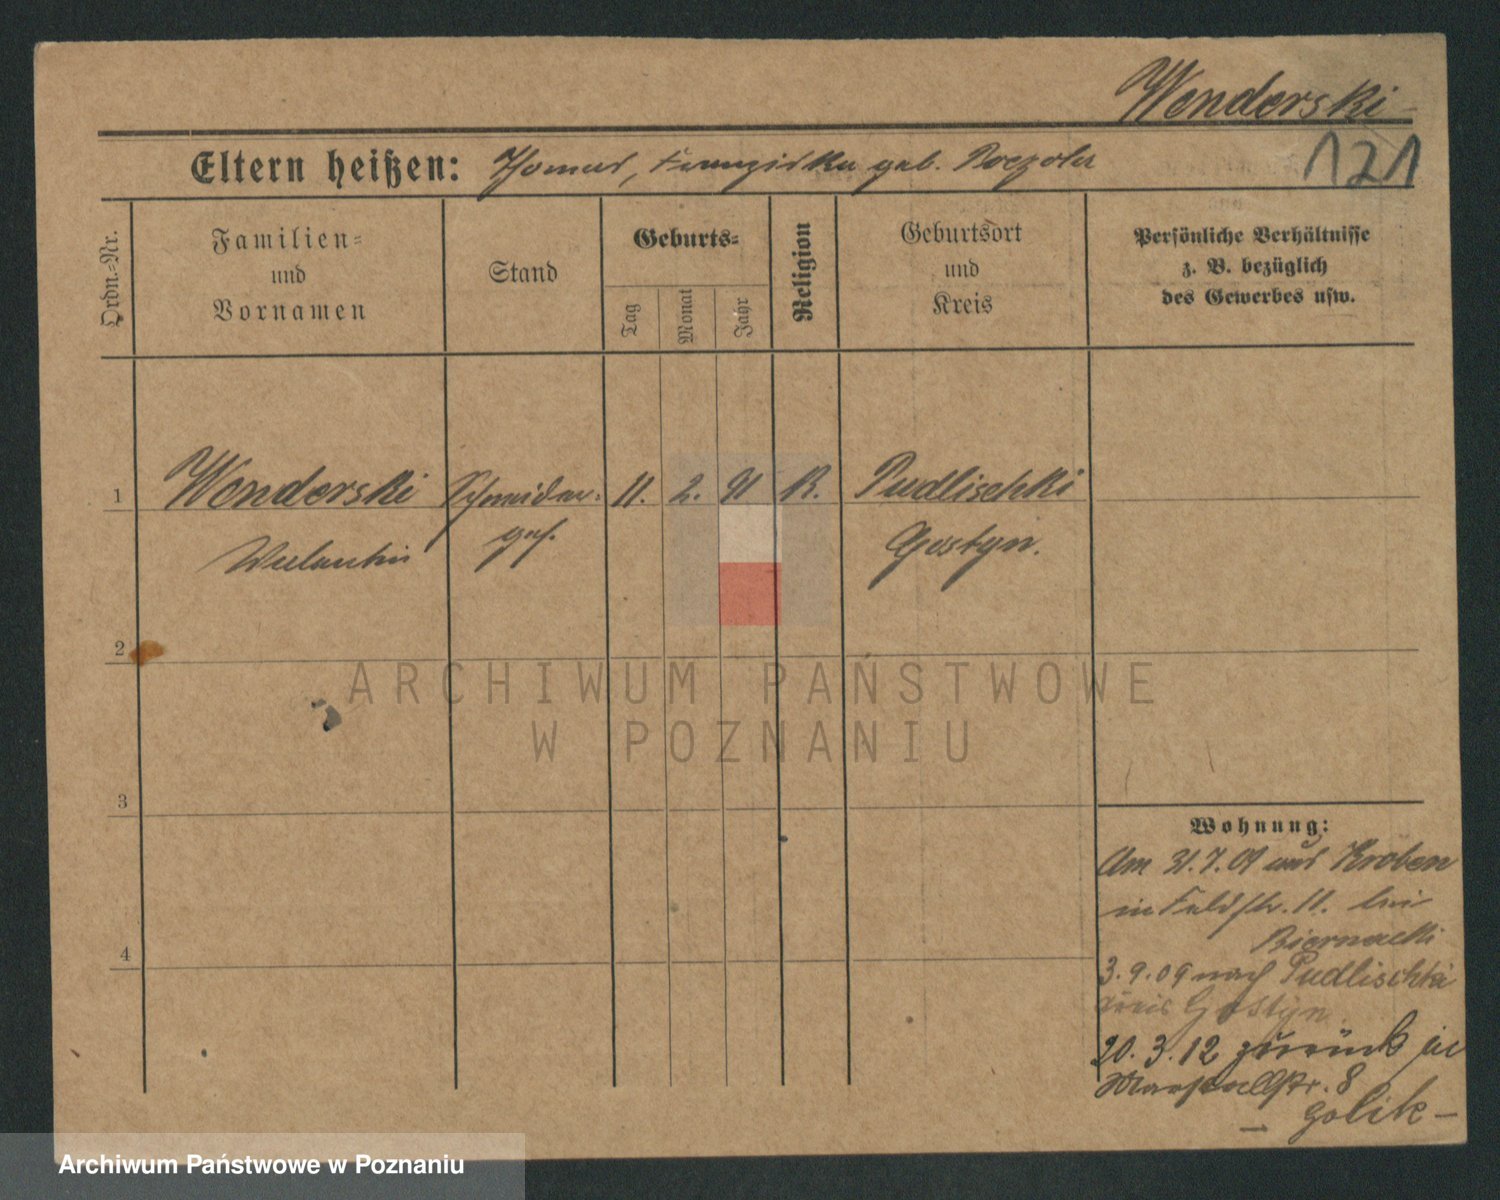 Wenderski
121
Eltern heißen: Thomas, Franziska geb. Poczola
Ordn.=Nr.
Familien=
und
Vornamen
Stand
Geburts=
Tag
Monat
Jahr
Religion
Geburtsort
und
Kreis
Persönliche Verhältnisse
z. B. bezüglich
des Gewerbes usw.
1 Wenderski Schneider= 11. 2. 91 K. Pudlischki
Valentin ges. Gostyn.
2
3
4
Wohnung:
Am 31.7.09 aus Kroben
in Feldstr. 11. bei
Biernacki
3.9.09 nach Pudlischki
Kreis Gostyn
20.3.12 zurück in
Marstallstr. 8
Golik
ARCHIWUM PAŃSTWOWE
W POZNANIU
Archiwum Państwowe w Poznaniu